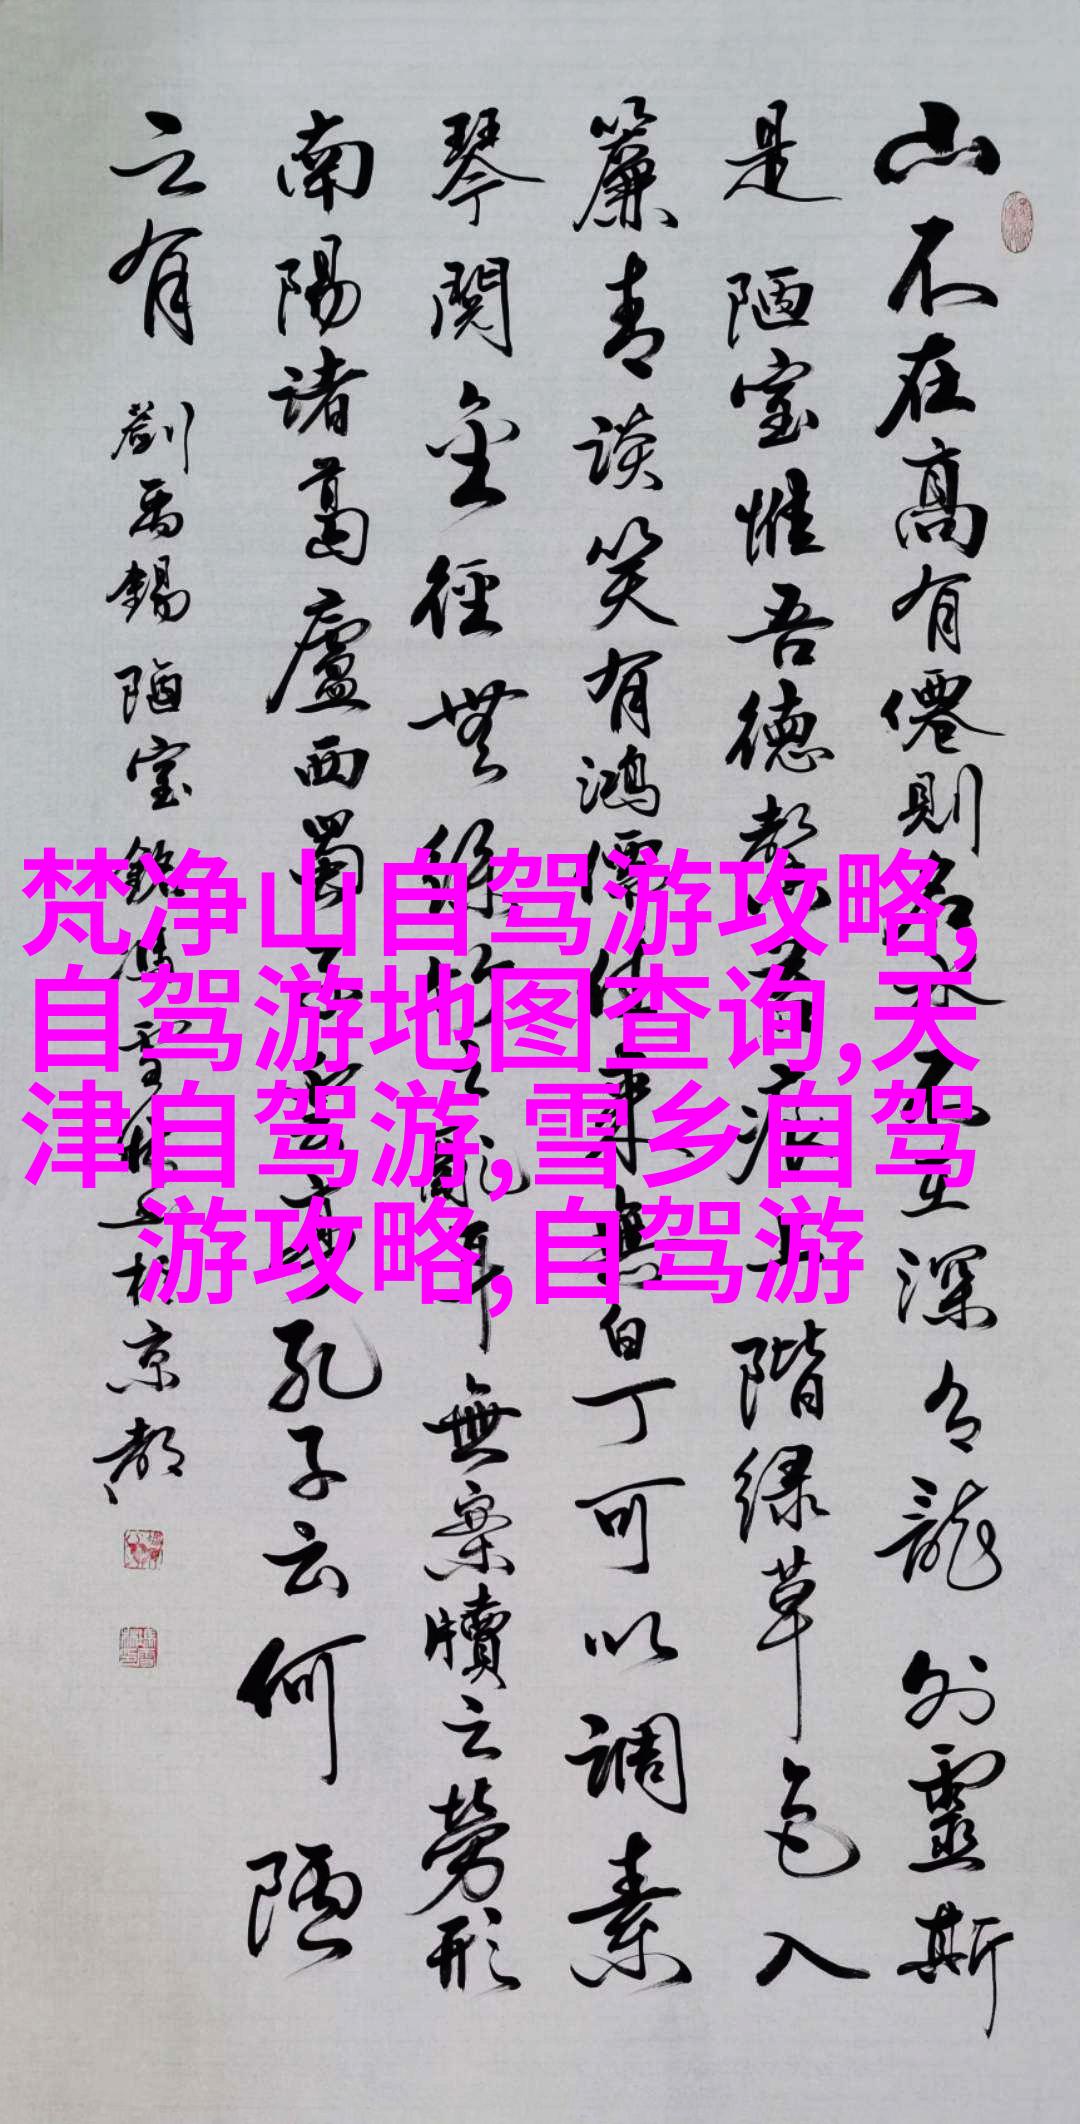 山不在高有僊則名水不在深有龍則靈斯
是陋室惟吾德馨苔痕上階緑草色入
簾青談笑有鴻儒往来無白丁可以調素
琴閲金徑無絲竹之亂耳無案牘之勞形
南陽諸葛廬西蜀子雲亭孔子云何陋
之有 劉禹錫陋室銘 京都
梵净山自驾游攻略,
自驾游地图查询,天
津自驾游,雪乡自驾
游攻略,自驾游